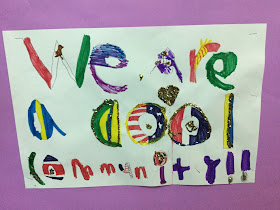 We are
a cool
community!!